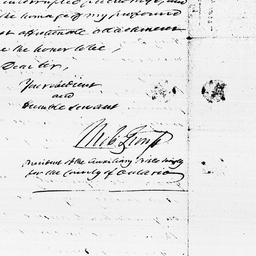 uninterrupted friendship, and
the homage of my profound
affectionate attachment
the honor to be,
Dear Sir,
Your obedient
and
Humble Servant
President of the Auxiliary Bible Society
for the County of Ontario